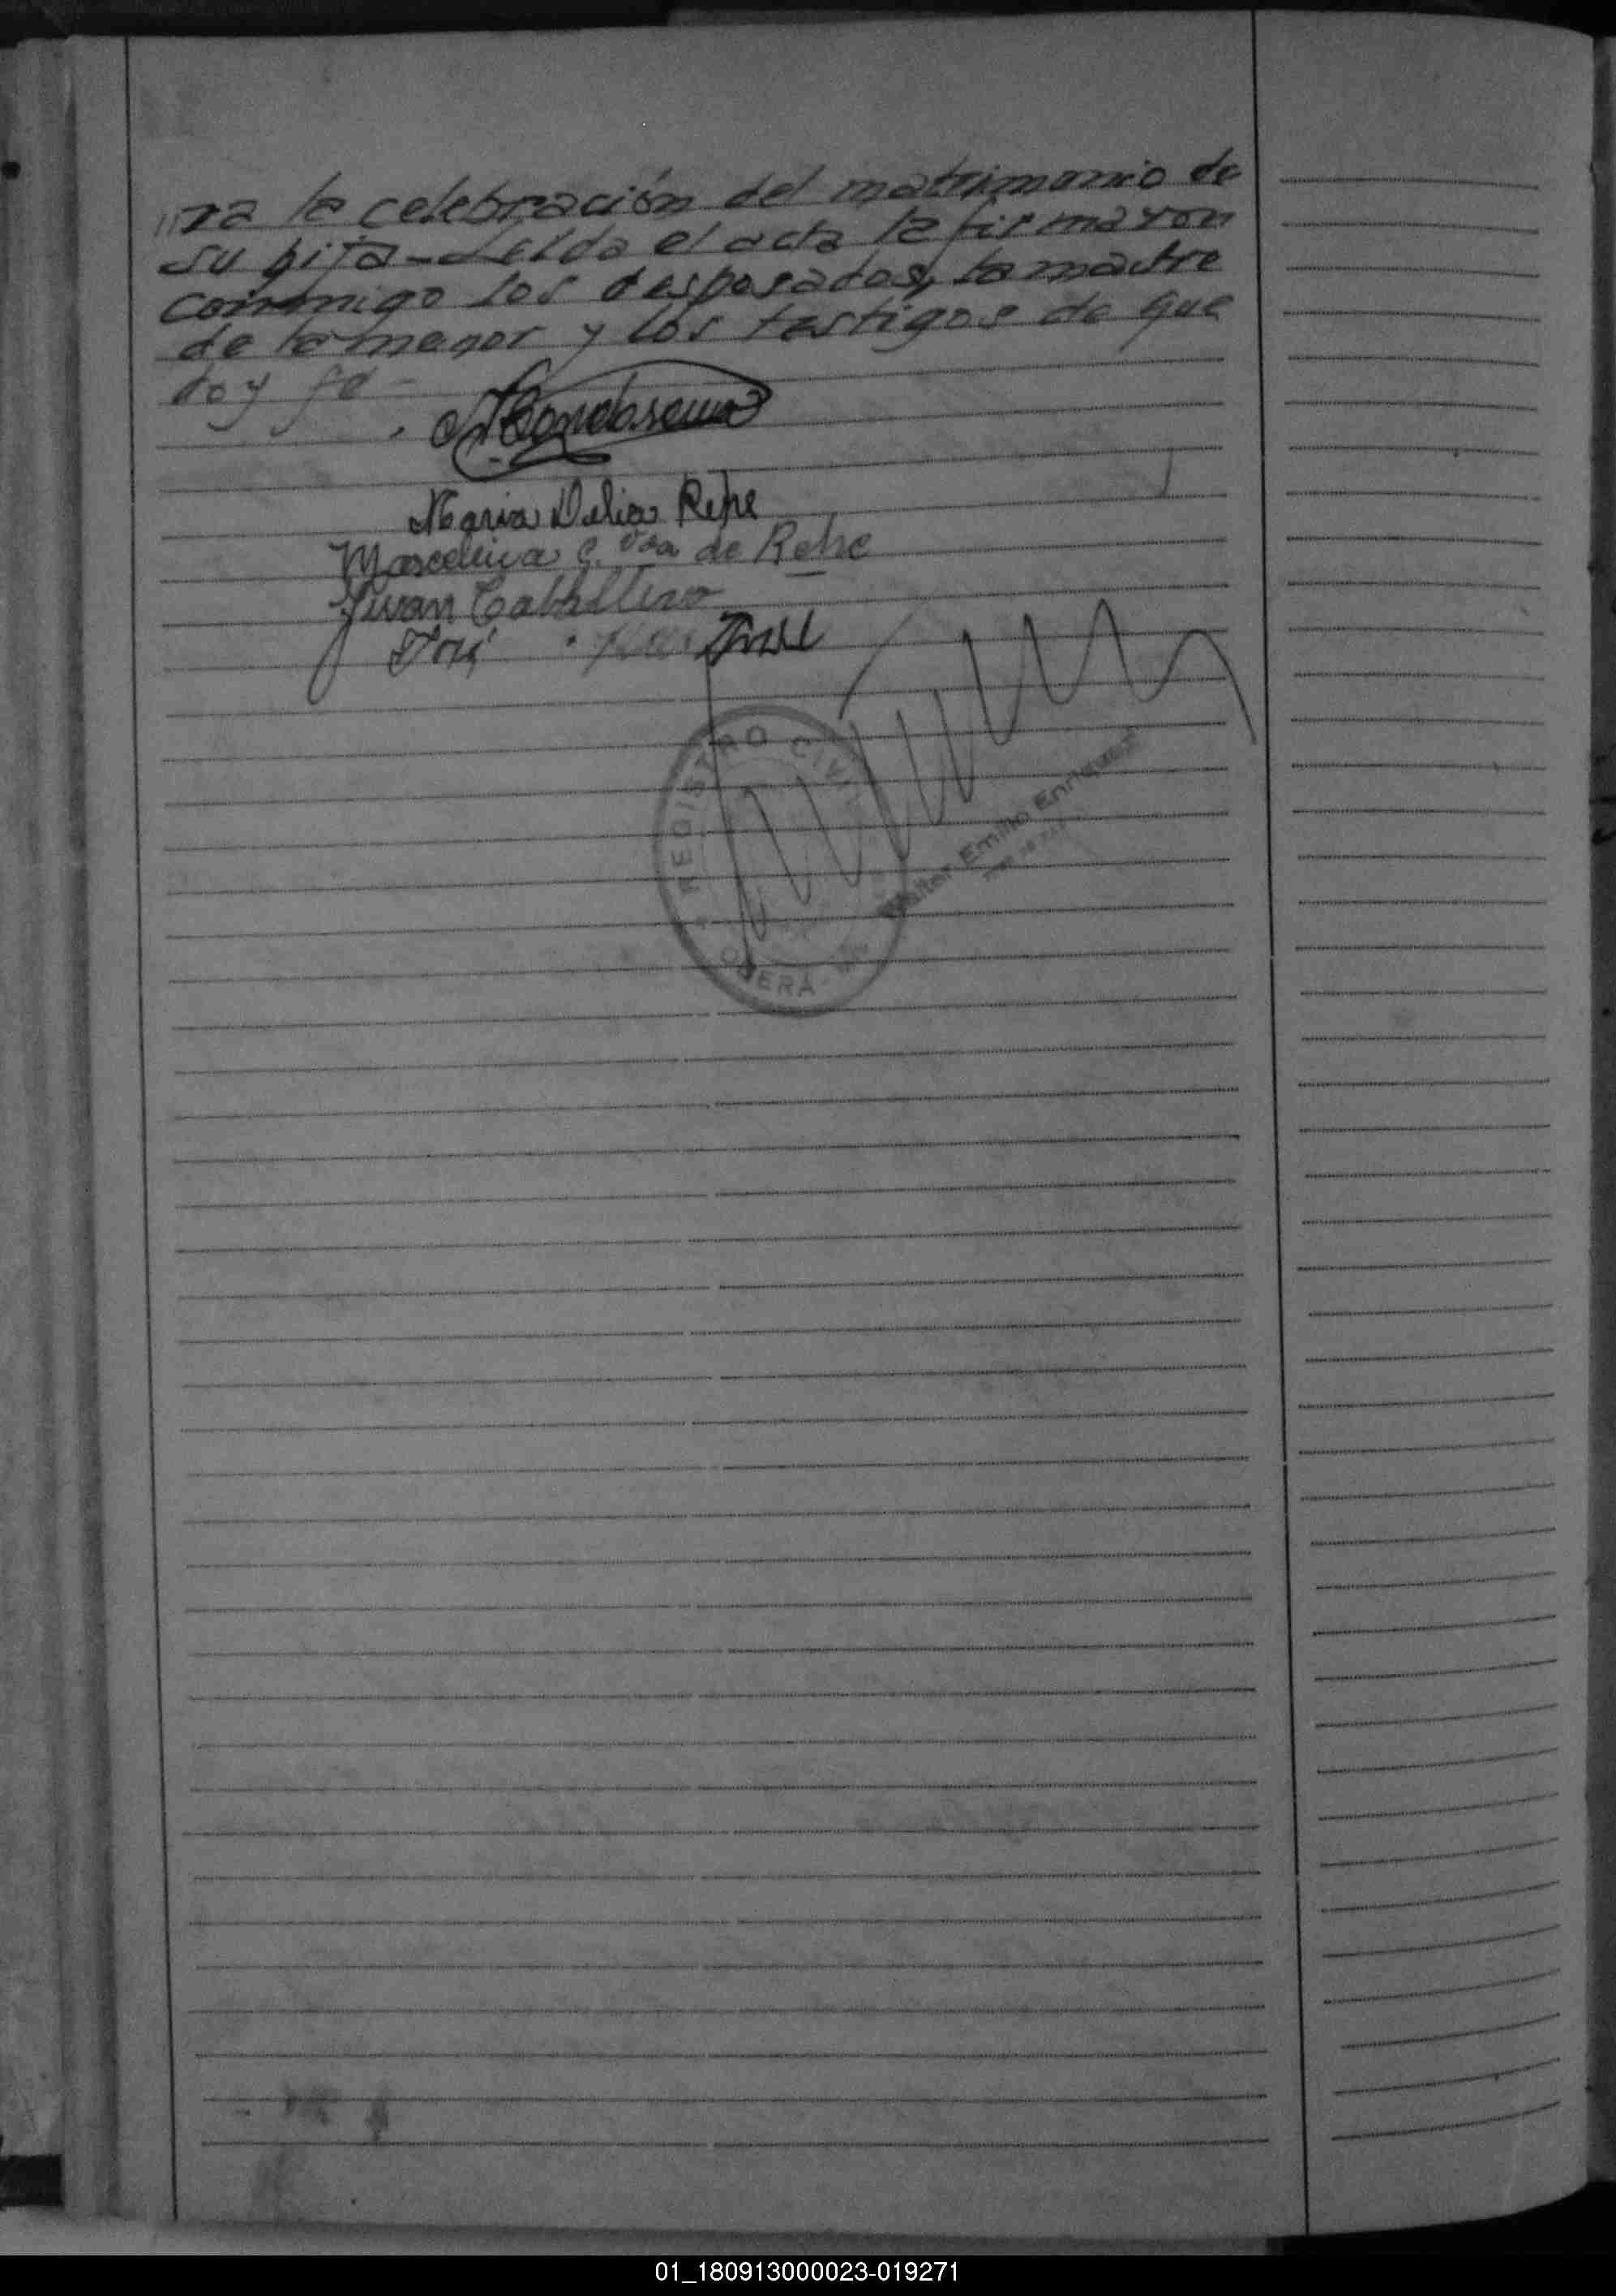 "ra la celebración del matrimonio de
su hija - Leída el acta la firmaron
conmigo los desposados, la madre
de la menor y los testigos de que
doy fe -
Maria Delia Repe
Marcelina G. Vda de Repe
Juan Caballero
José
REGISTRO CIVIL
OBERA
Walter Emilio Enriquez
01_180913000023-019271